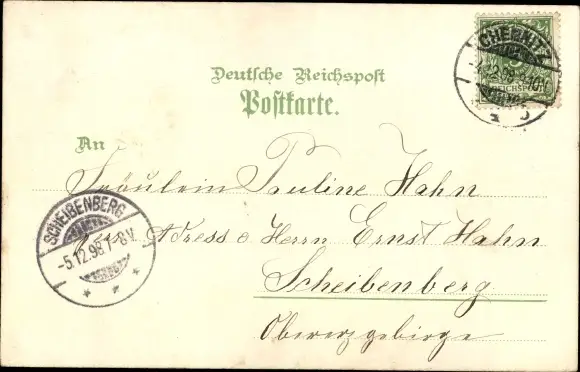 CHEMNITZ
REICHSPOST
Deutsche Reichspost
Postkarte.
An
Fräulein Pauline Hahn
Adresse Herrn Ernst Hahn
Scheibenberg
Obererzgebirge
SCHEIBENBERG
-5.12.98.7-8V.